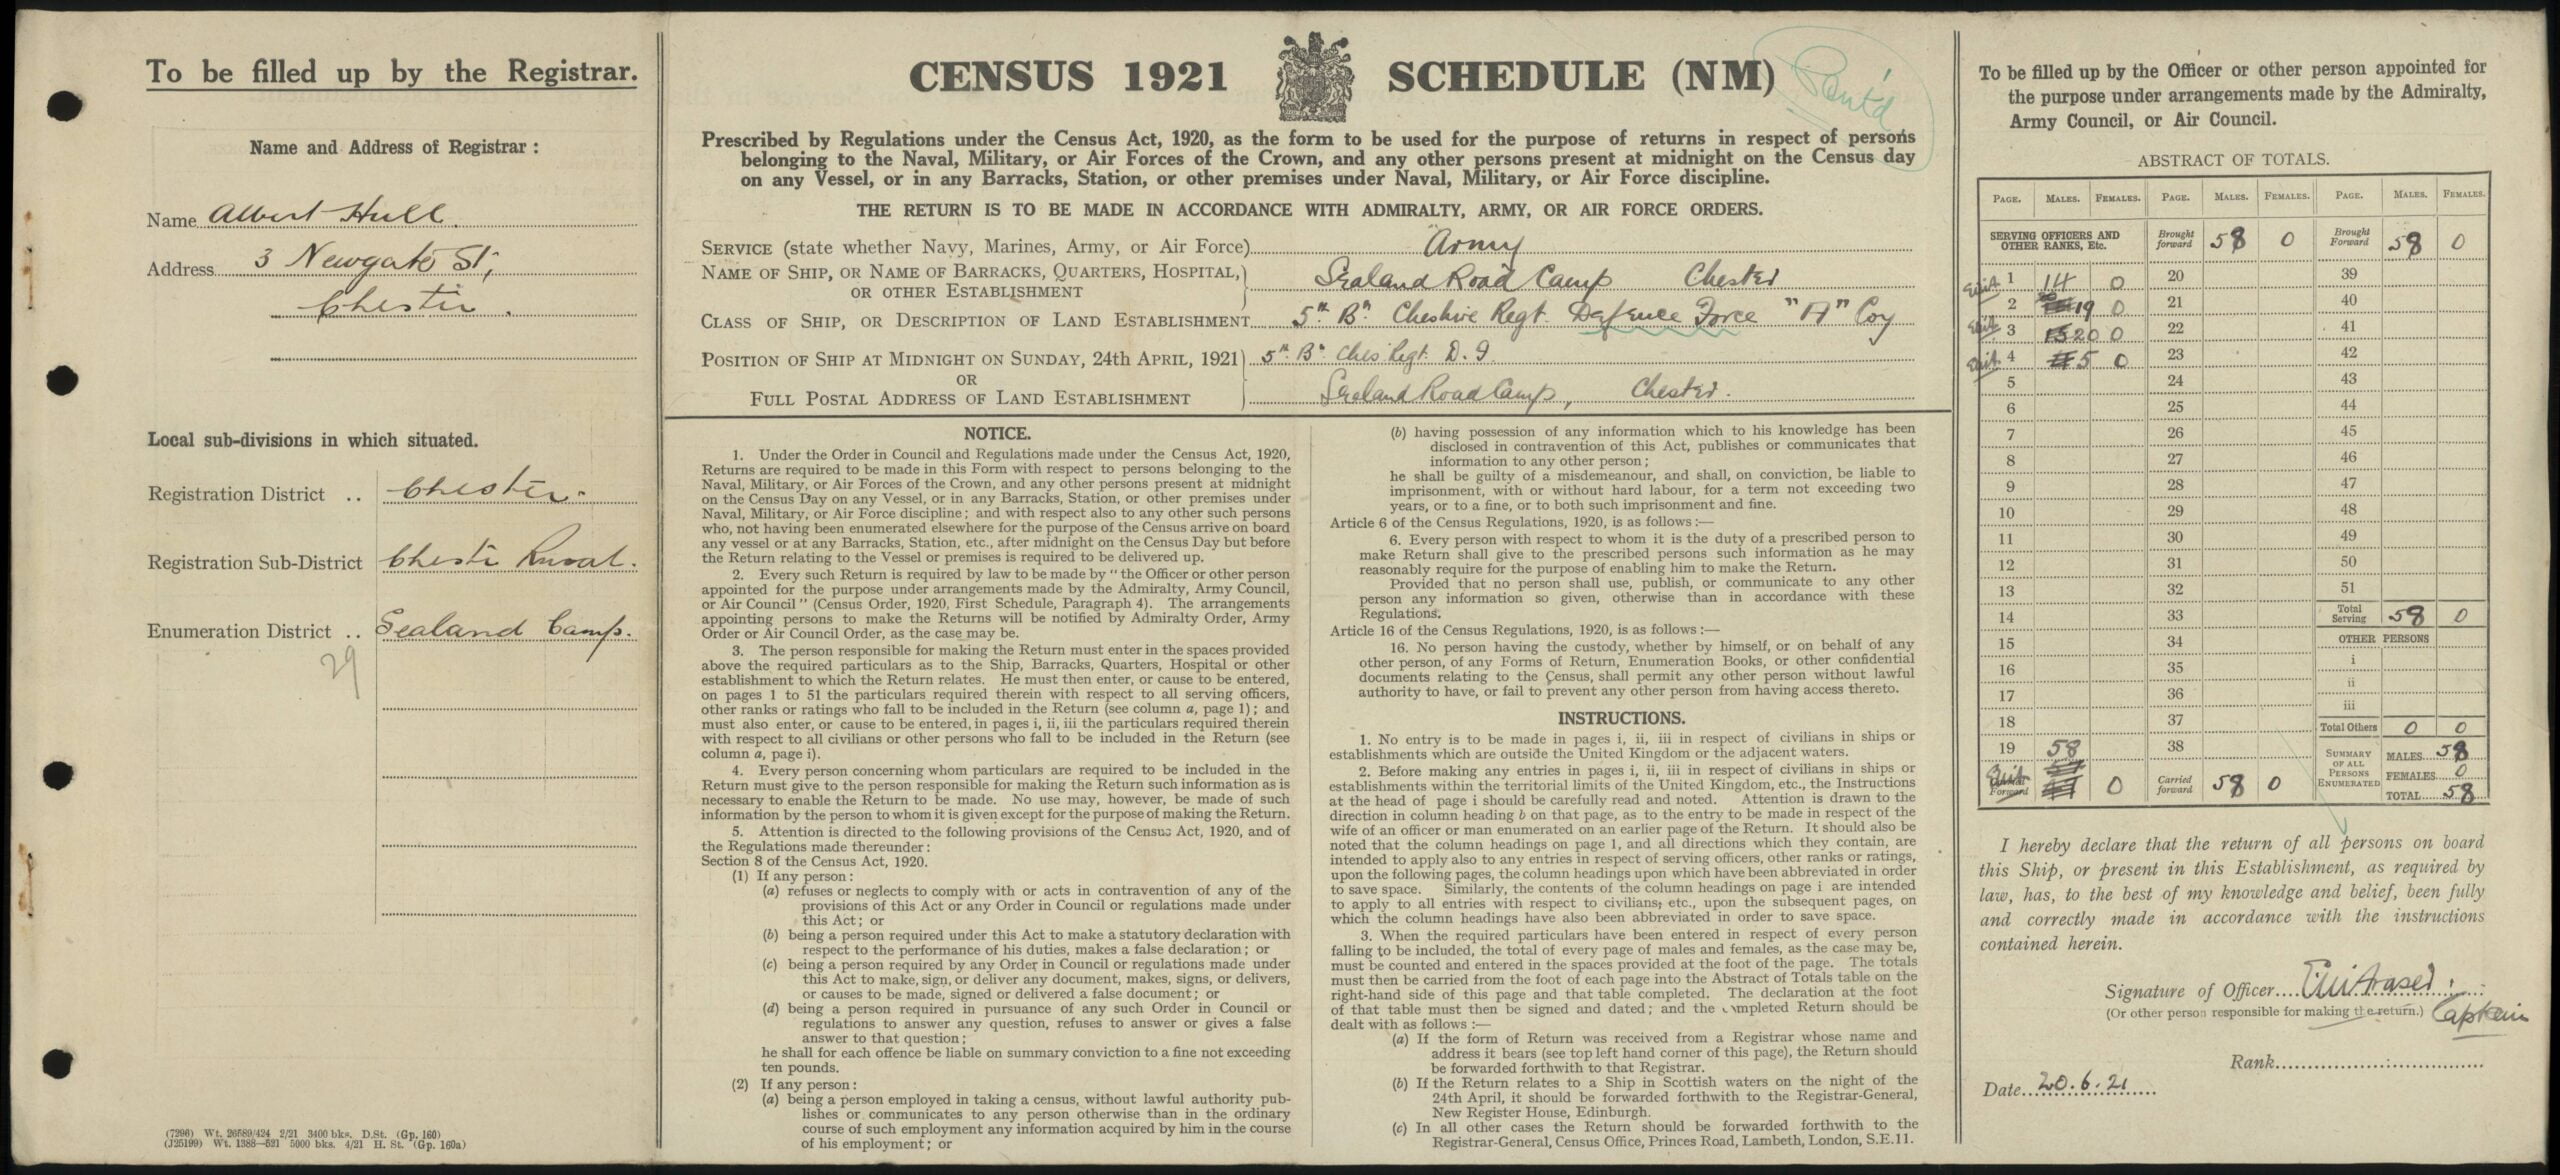 To be filled up by the Registrar.
Name and Address of Registrar :
Name Albert Hull.
Address 3 Newgate St,
Chester.
Local sub-divisions in which situated.
Registration District .. Chester.
Registration Sub-District Chester Rural.
Enumeration District .. Sealand Camp.
29
(7296) Wt. 26589/424 2/21 3400 bks. D.St. (Gp. 160)
(J25199) Wt. 1388—521 5000 bks. 4/21 H. St. (Gp. 160a)
CENSUS 1921 SCHEDULE (NM)
Prescribed by Regulations under the Census Act, 1920, as the form to be used for the purpose of returns in respect of persons
belonging to the Naval, Military, or Air Forces of the Crown, and any other persons present at midnight on the Census day
on any Vessel, or in any Barracks, Station, or other premises under Naval, Military, or Air Force discipline.
THE RETURN IS TO BE MADE IN ACCORDANCE WITH ADMIRALTY, ARMY, OR AIR FORCE ORDERS.
SERVICE (state whether Navy, Marines, Army, or Air Force) Army
NAME OF SHIP, OR NAME OF BARRACKS, QUARTERS, HOSPITAL, OR OTHER ESTABLISHMENT Sealand Road Camp Chester
CLASS OF SHIP, OR DESCRIPTION OF LAND ESTABLISHMENT 5th Bn Cheshire Regt. Defence Force "A" Coy
POSITION OF SHIP AT MIDNIGHT ON SUNDAY, 24TH APRIL, 1921 5th Bn Ches Regt D.F
OR
FULL POSTAL ADDRESS OF LAND ESTABLISHMENT Sealand Road Camp, Chester.
NOTICE.
1. Under the Order in Council and Regulations made under the Census Act, 1920,
Returns are required to be made in this Form with respect to persons belonging to the
Naval, Military, or Air Forces of the Crown, and any other persons present at midnight
on the Census Day on any Vessel, or in any Barracks, Station, or other premises under
Naval, Military, or Air Force discipline; and with respect also to any other such persons
who, not having been enumerated elsewhere for the purpose of the Census arrive on board
any vessel or at any Barracks, Station, etc., after midnight on the Census Day but before
the Return relating to the Vessel or premises is required to be delivered up.
2. Every such Return is required by law to be made by "the Officer or other person
appointed for the purpose under arrangements made by the Admiralty, Army Council,
or Air Council" (Census Order, 1920, First Schedule, Paragraph 4). The arrangements
appointing persons to make the Returns will be notified by Admiralty Order, Army
Order or Air Council Order, as the case may be.
3. The person responsible for making the Return must enter in the spaces provided
above the required particulars as to the Ship, Barracks, Quarters, Hospital or other
establishment to which the Return relates. He must then enter, or cause to be entered,
on pages 1 to 51 the particulars required therein with respect to all serving officers,
other ranks or ratings who fall to be included in the Return (see column a, page 1); and
must also enter, or cause to be entered, in pages i, ii, iii the particulars required therein
with respect to all civilians or other persons who fall to be included in the Return (see
column a, page i).
4. Every person concerning whom particulars are required to be included in the
Return must give to the person responsible for making the Return such information as is
necessary to enable the Return to be made. No use may, however, be made of such
information by the person to whom it is given except for the purpose of making the Return.
5. Attention is directed to the following provisions of the Census Act, 1920, and of
the Regulations made thereunder:
Section 8 of the Census Act, 1920.
(1) If any person:
(a) refuses or neglects to comply with or acts in contravention of any of the
provisions of this Act or any Order in Council or regulations made under
this Act; or
(b) being a person required under this Act to make a statutory declaration with
respect to the performance of his duties, makes a false declaration; or
(c) being a person required by any Order in Council or regulations made under
this Act to make, sign, or deliver any document, makes, signs, or delivers,
or causes to be made, signed or delivered a false document; or
(d) being a person required in pursuance of any such Order in Council or
regulations to answer any question, refuses to answer or gives a false
answer to that question;
he shall for each offence be liable on summary conviction to a fine not exceeding
ten pounds.
(2) If any person:
(a) being a person employed in taking a census, without lawful authority pub-
lishes or communicates to any person otherwise than in the ordinary
course of such employment any information acquired by him in the course
of his employment; or
(b) having possession of any information which to his knowledge has been
disclosed in contravention of this Act, publishes or communicates that
information to any other person;
he shall be guilty of a misdemeanour, and shall, on conviction, be liable to
imprisonment, with or without hard labour, for a term not exceeding two
years, or to a fine, or to both such imprisonment and fine.
Article 6 of the Census Regulations, 1920, is as follows:—
6. Every person with respect to whom it is the duty of a prescribed person to
make Return shall give to the prescribed persons such information as he may
reasonably require for the purpose of enabling him to make the Return.
Provided that no person shall use, publish, or communicate to any other
person any information so given, otherwise than in accordance with these
Regulations.
Article 16 of the Census Regulations, 1920, is as follows:—
16. No person having the custody, whether by himself, or on behalf of any
other person, of any Forms of Return, Enumeration Books, or other confidential
documents relating to the Census, shall permit any other person without lawful
authority to have, or fail to prevent any other person from having access thereto.
INSTRUCTIONS.
1. No entry is to be made in pages i, ii, iii in respect of civilians in ships or
establishments which are outside the United Kingdom or the adjacent waters.
2. Before making any entries in pages i, ii, iii in respect of civilians in ships or
establishments within the territorial limits of the United Kingdom, etc., the Instructions
at the head of page i should be carefully read and noted. Attention is drawn to the
direction in column heading b on that page, as to the entry to be made in respect of the
wife of an officer or man enumerated on an earlier page of the Return. It should also be
noted that the column headings on page 1, and all directions which they contain, are
intended to apply also to any entries in respect of serving officers, other ranks or ratings,
upon the following pages, the column headings upon which have been abbreviated in order
to save space. Similarly, the contents of the column headings on page i are intended
to apply to all entries with respect to civilians, etc., upon the subsequent pages, on
which the column headings have also been abbreviated in order to save space.
3. When the required particulars have been entered in respect of every person
falling to be included, the total of every page of males and females, as the case may be,
must be counted and entered in the spaces provided at the foot of the page. The totals
must then be carried from the foot of each page into the Abstract of Totals table on the
right-hand side of this page and that table completed. The declaration at the foot
of that table must then be signed and dated; and the completed Return should be
dealt with as follows:—
(a) If the form of Return was received from a Registrar whose name and
address it bears (see top left hand corner of this page), the Return should
be forwarded forthwith to that Registrar.
(b) If the Return relates to a Ship in Scottish waters on the night of the
24th April, it should be forwarded forthwith to the Registrar-General,
New Register House, Edinburgh.
(c) In all other cases the Return should be forwarded forthwith to the
Registrar-General, Census Office, Princes Road, Lambeth, London, S.E.11.
To be filled up by the Officer or other person appointed for
the purpose under arrangements made by the Admiralty,
Army Council, or Air Council.
ABSTRACT OF TOTALS.
PAGE. MALES. FEMALES. PAGE. MALES. FEMALES. PAGE. MALES. FEMALES.
SERVING OFFICERS AND OTHER RANKS, ETC. Brought forward 58 0 Brought Forward 58 0
1 14 0 20 39
2 19 0 21 40
3 15 20 0 22 41
4 5 0 23 42
5 24 43
6 25 44
7 26 45
8 27 46
9 28 47
10 29 48
11 30 49
12 31 50
13 32 51
14 33 Total Serving 58 0
15 34 OTHER PERSONS
16 35 i
17 36 ii
18 37 iii
Total Others 0 0
19 58 38 SUMMARY OF ALL PERSONS ENUMERATED MALES 58
FEMALES 0
Forward 0 Carried forward 58 0 TOTAL 58
I hereby declare that the return of all persons on board
this Ship, or present in this Establishment, as required by
law, has, to the best of my knowledge and belief, been fully
and correctly made in accordance with the instructions
contained herein.
Signature of Officer
(Or other person responsible for making the return.) Captain
Rank
Date 20.6.21